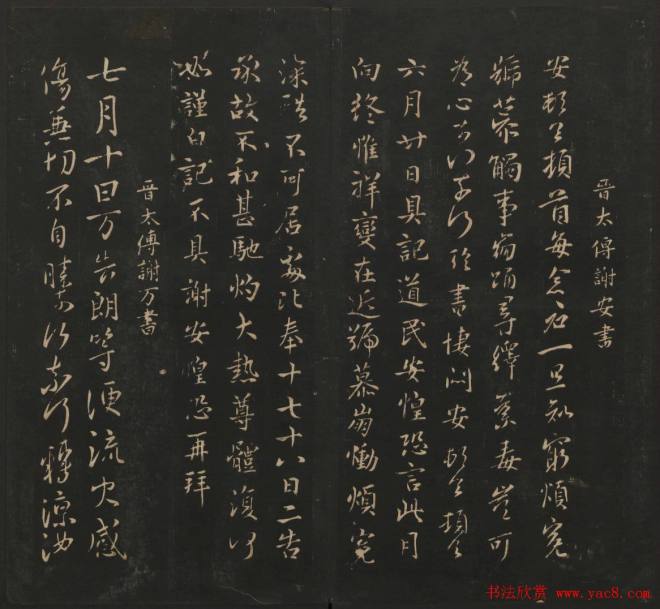 晉太傅謝安書
安頓首頓首每念君一旦知窮煩冤
號慕觸事崩踊尋繹荼毒豈可
為心奈何奈何臨書悽悶安頓首頓首
六月廿日具記道民安惶恐言此月
向終惟祥變在近號慕崩慟煩冤
深酷不可居處比奉十七十八日二告
承故不和甚馳灼大熱尊體復何
如謹白記不具謝安惶恐再拜
晉太傅謝万書
七月十日万告朗等便流火感
傷兼切不自勝奈何奈何轉涼汝
书法欣赏 www.yac8.com